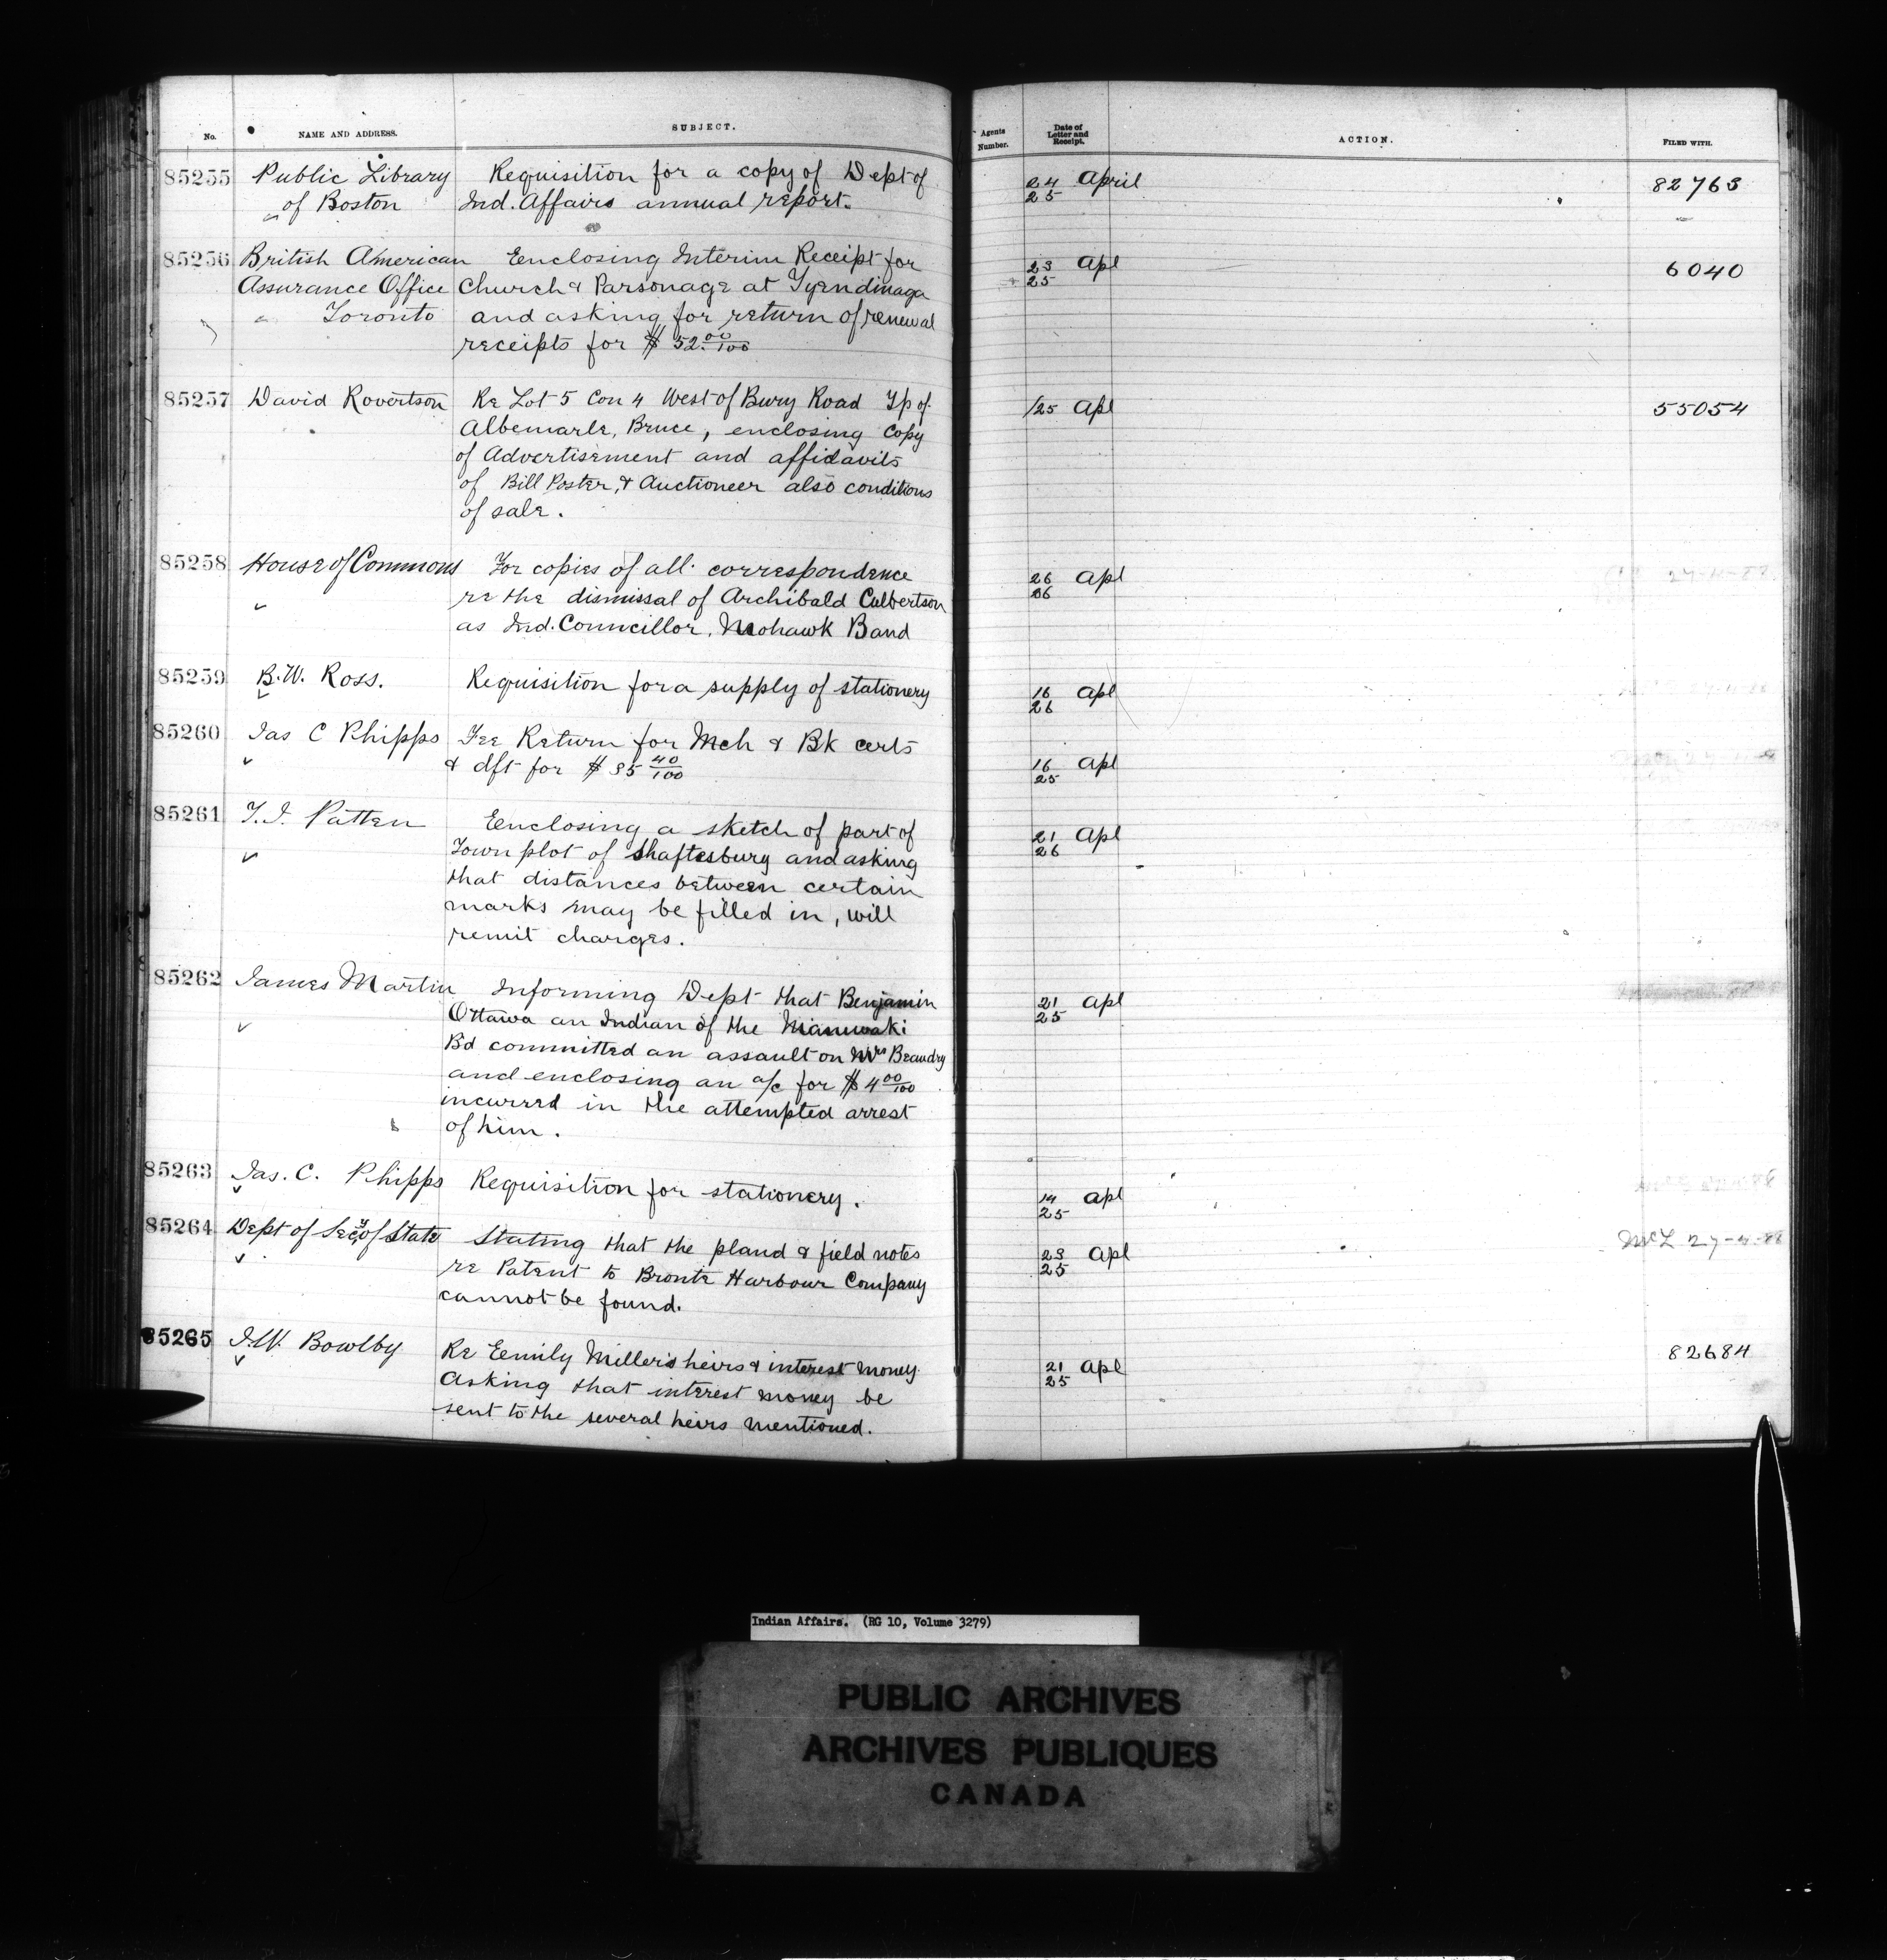 No. NAME AND ADDRESS. SUBJECT. Agents Number. Date of Letter and Receipt. ACTION. FILED WITH.
85255 Public Library Requisition for a copy of Dept of 24 April 82763
of Boston Ind. Affairs annual report. 25
85256 British American Eenclosing Interim Receipt for 23 Apl 6040
Assurance Office Church & Parsonage at Tyendinaga 25
Toronto and asking for return of renewal
receipts for $ 52.00/100
85257 David Rovertson Re Lot 5 Con 4 West of Bury Road Tp of /25 Apl 55054
Albemarle, Bruce, enclosing Copy
of Advertisement and affidavits
of Bill Poster, & Auctioneer also conditions
of sale.
85258 House of Commons For copies of all correspondence 26 Apl
re the dismissal of Archibald Culbertson 26
as Ind. Councillor, Mohawk Band
85259 B.W. Ross. Requisition for a supply of stationery 16 Apl
26
85260 Jas C Phipps Fee Return for Mch & Bk certs 16 Apl
& dft for $ 35 40/100 25
85261 T.J. Patten Eenclosing a sketch of part of 21 Apl
Town plot of Shaftesbury and asking 26
that distances between certain
marks may be filled in, will
remit charges.
85262 James Martin Informing Dept that Benjamin 21 Apl
Ottawa an Indian of the Maniwaki 25
Bd committed an assault on Mrs Beaudry
and enclosing an a/c for $ 4 00/100
incurred in the attempted arrest
of him.
85263 Jas. C. Phipps Requisition for stationery. 14 Apl
25
85264 Dept of Secy of State Stating that the pland & field notes 23 Apl McL 27-4-88
re Patent to Bronte Harbour Company 25
cannot be found.
85265 J.W. Bowlby Re Eemily Miller's heirs & interest money. 21 Apl 82684
Asking that interest money be 25
sent to the several heirs mentioned.
Indian Affairs. (RG 10, Volume 3279)
PUBLIC ARCHIVES
ARCHIVES PUBLIQUES
CANADA